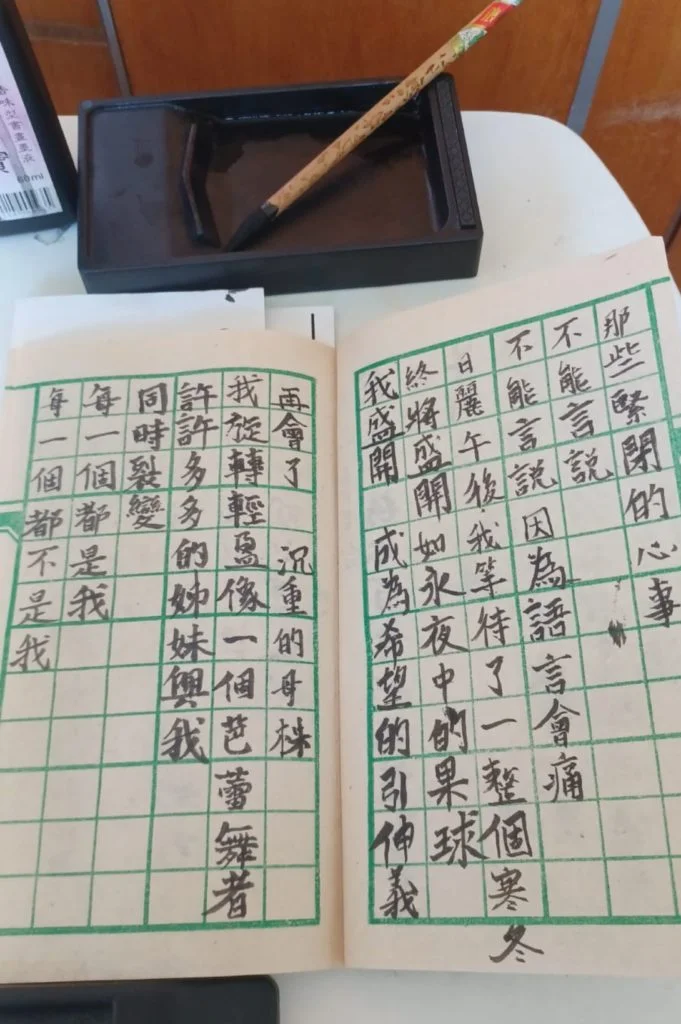 那些緊閉的心事
不能言說
不能言說因為語言會痛
日麗午後，我等待了一整個寒冬
終將盛開如永夜中的果球
我盛開 成為希望的引伸義
再會了 沉重的母株
我旋轉輕盈像一個芭蕾舞者
許許多多的姊妹興我
同時裂變
每一個都是我
每一個都不是我
味型書畫墨液